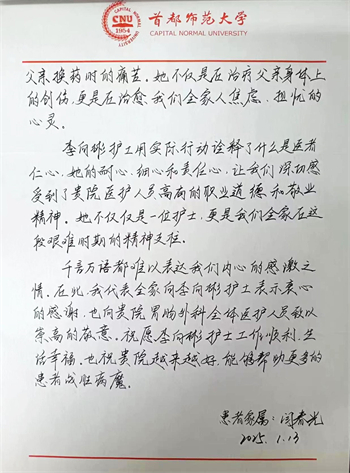 CAPITAL NORMAL UNIVERSITY
CNU
1954
首都师范大学
CAPITAL NORMAL UNIVERSITY
父亲换药时的痛苦。她不仅是在治疗父亲身体上
的创伤,更是在治愈我们全家人焦虑、担忧的
心灵。
李向彬护士用实际行动诠释了什么是医者
仁心,她的耐心、细心和责任心,让我们深切感
受到了贵院医护人员高尚的职业道德和敬业
精神。她不仅仅是一位护士,更是我们全家在这
段艰难时期的精神支柱。
千言万语都难以表达我们内心的感激之
情。在此,我代表全家向李向彬护士表示衷心
的感谢,也向贵院胃肠外科全体医护人员致以
崇高的敬意。祝愿李向彬护士工作顺利、生
活幸福,也祝贵院越来越好,能够帮助更多的
患者战胜病魔。
患者家属:闫春光
2025.1.13